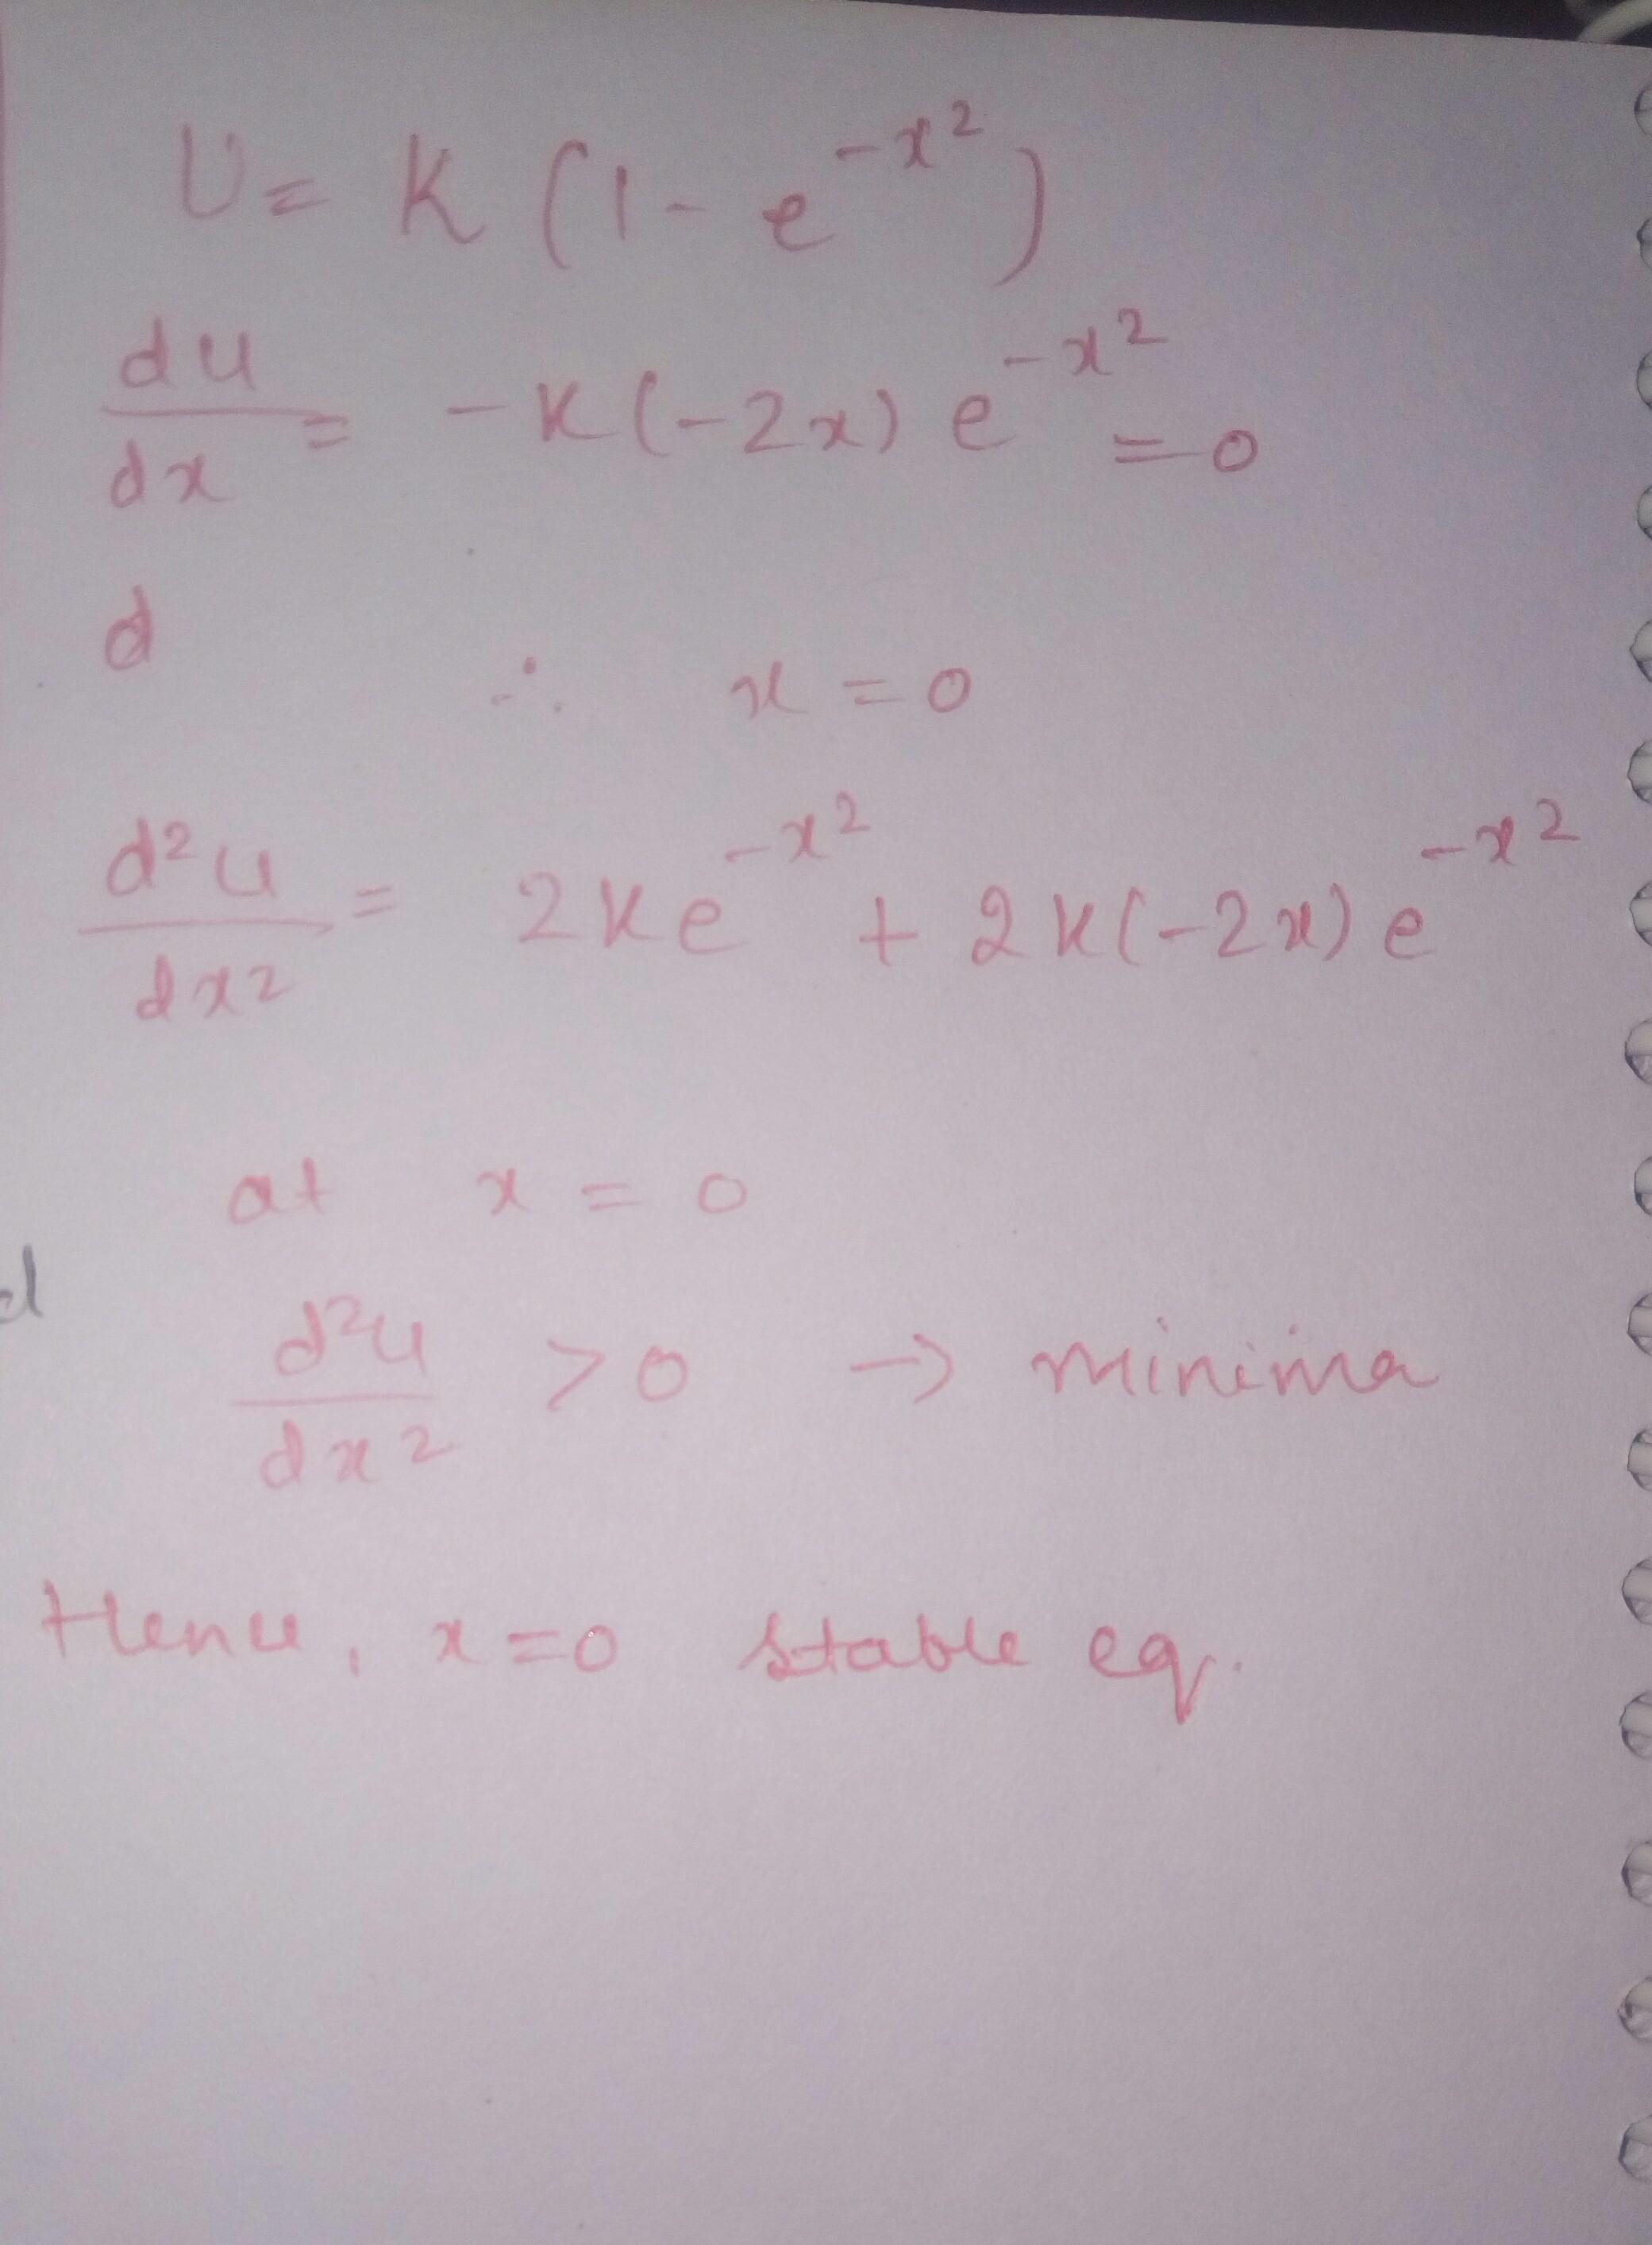 U = K (1 - e^{-x^2})
du/dx = -K(-2x) e^{-x^2} = 0
d
∴ x = 0
d²u/dx² = 2Ke^{-x^2} + 2K(-2x) e^{-x^2}
at x = 0
d
d²u/dx² > 0 → minima
Hence, x = 0 stable eq.